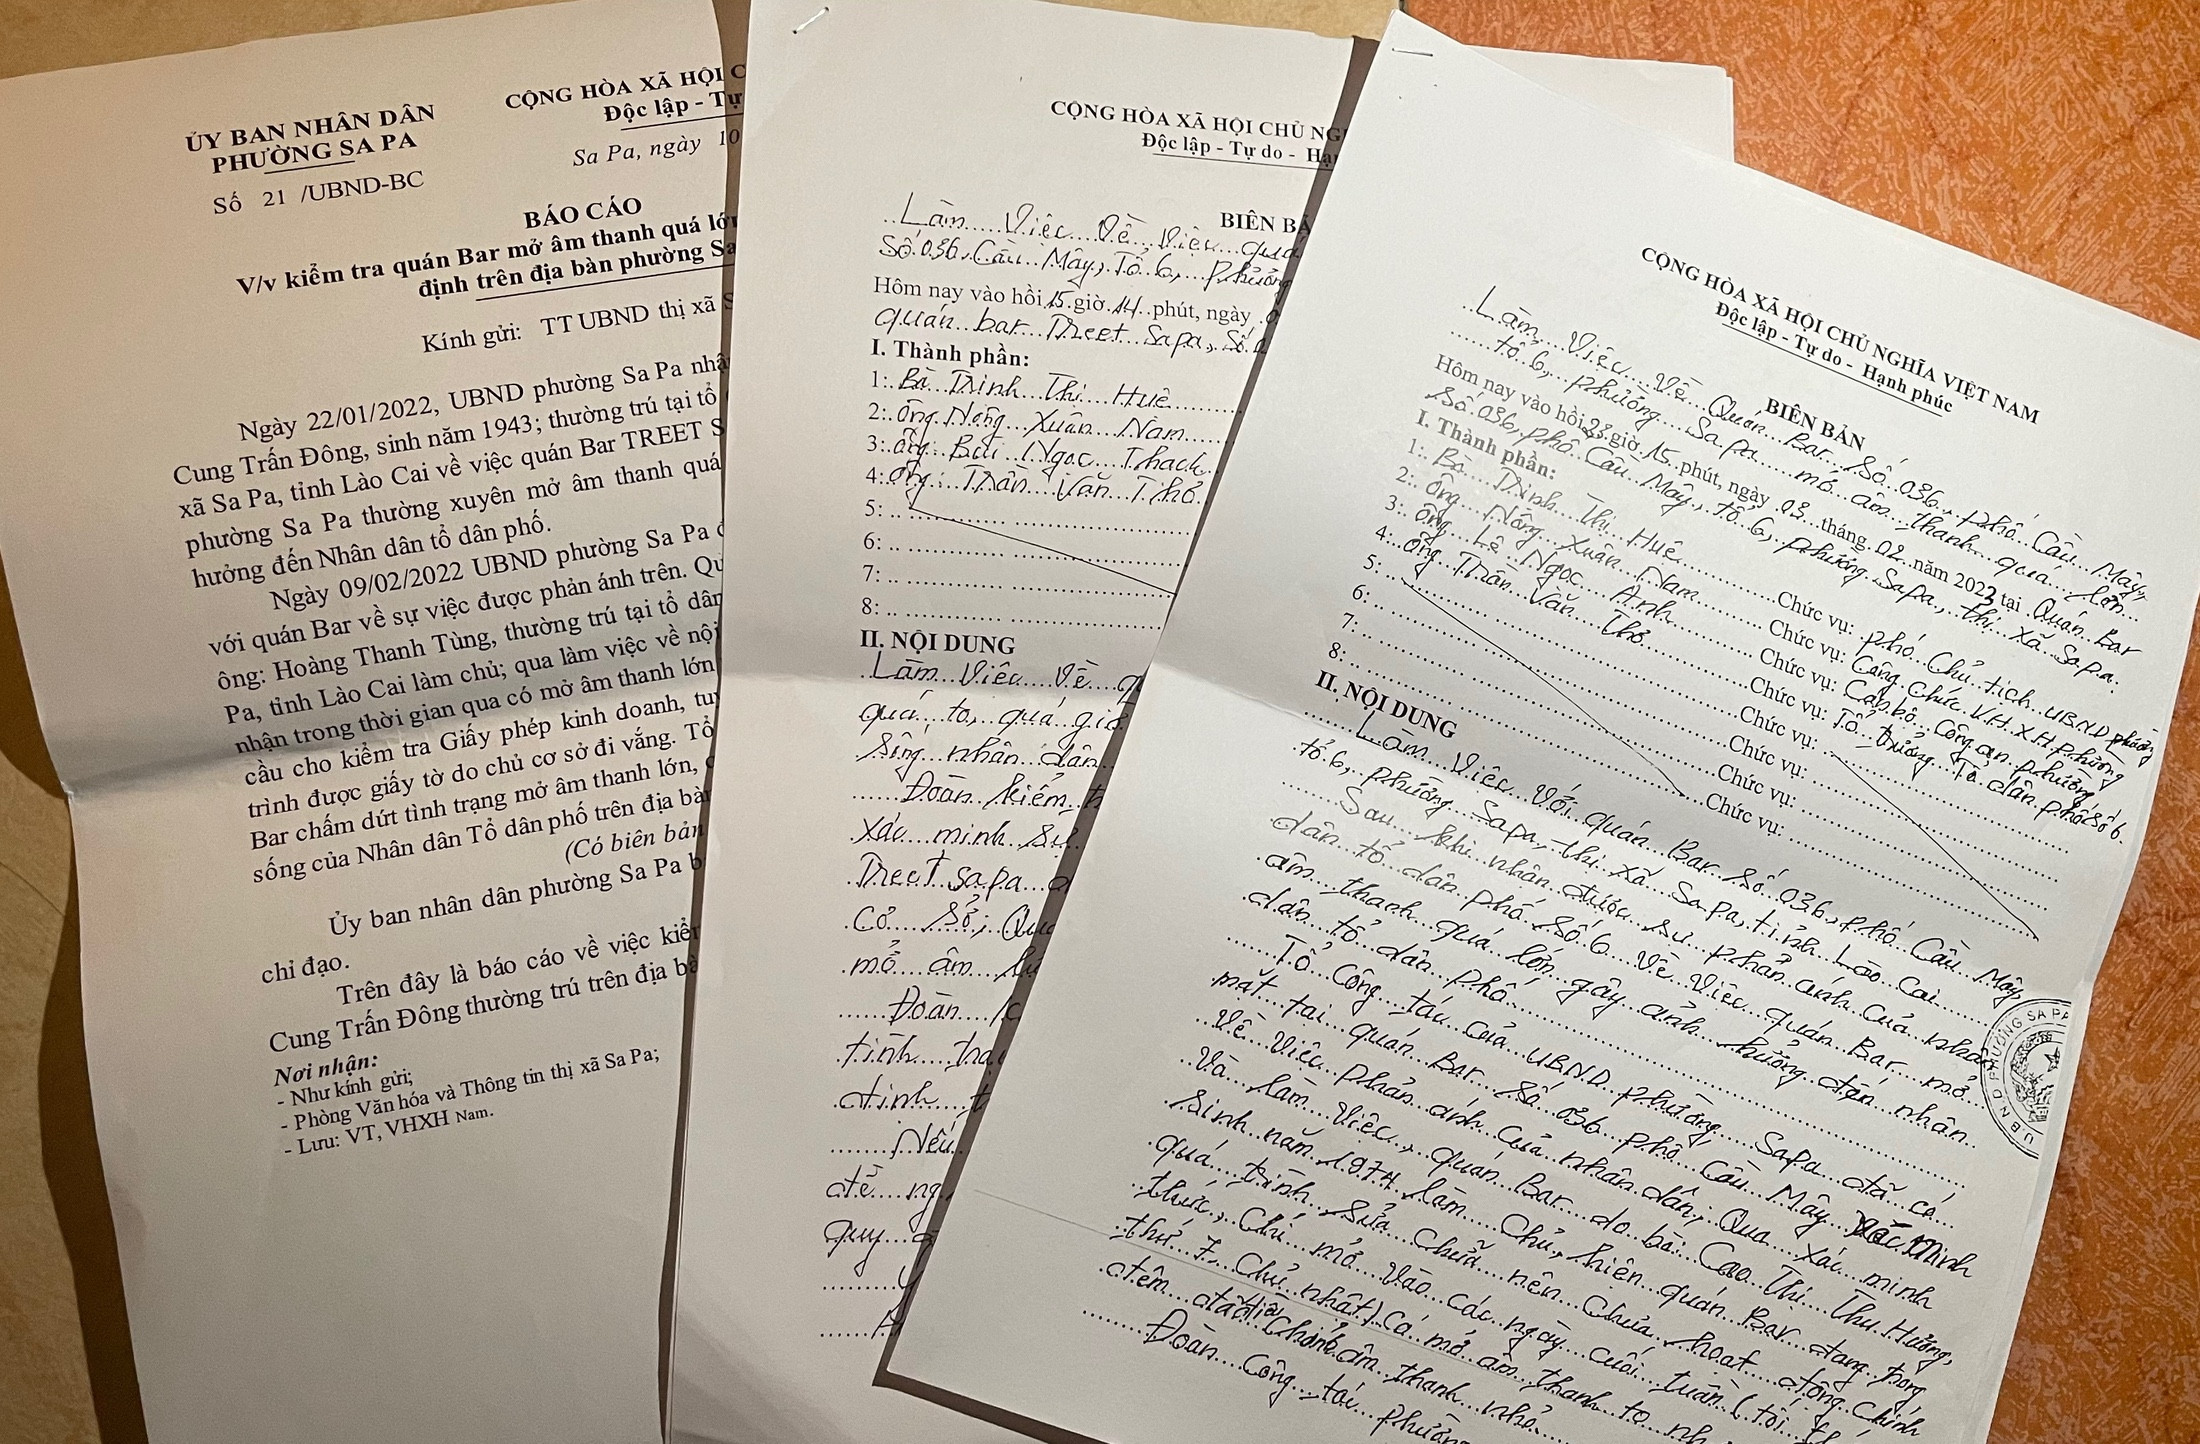 ỦY BAN NHÂN DÂN
PHƯỜNG SA PA
Số 21 /UBND-BC
CỘNG HÒA XÃ HỘI C
Độc lập - Tự
Sa Pa, ngày 10
BÁO CÁO
V/v kiểm tra quán Bar mở âm thanh quá lớn
định trên địa bàn phường Sa
Kính gửi: TT UBND thị xã S
Ngày 22/01/2022, UBND phường Sa Pa nhậ
Cung Trấn Đông, sinh năm 1943; thường trú tại tổ
xã Sa Pa, tỉnh Lào Cai về việc quán Bar TREET S
phường Sa Pa thường xuyên mở âm thanh quá
hưởng đến Nhân dân tổ dân phố.
Ngày 09/02/2022 UBND phường Sa Pa
với quán Bar về sự việc được phản ánh trên. Qu
ông: Hoàng Thanh Tùng, thường trú tại tổ dân
Pa, tỉnh Lào Cai làm chủ; qua làm việc về nội
nhận trong thời gian qua có mở âm thanh lớn
cầu cho kiểm tra Giấy phép kinh doanh, tu
trình được giấy tờ do chủ cơ sở đi vắng. Tổ
Bar chấm dứt tình trạng mở âm thanh lớn,
sống của Nhân dân Tổ dân phố trên địa bàn
(Có biên bản
Ủy ban nhân dân phường Sa Pa b
chỉ đạo.
Trên đây là báo cáo về việc kiể
Cung Trấn Đông thường trú trên địa bà
Nơi nhận:
- Như kính gửi;
- Phòng Văn hóa và Thông tin thị xã Sa Pa;
- Lưu: VT, VHXH Nam.
CỘNG HÒA XÃ HỘI CHỦ NG
Độc lập - Tự do - Hạ
BIÊN BẢ
Làm Việc Về Việc quá
Số 036, Cầu Mây, Tổ 6, phường
Hôm nay vào hồi 15 giờ 14 phút, ngày 0
quán bar Treet Sapa, Số
I. Thành phần:
1: Bà Trinh Thị Huê
2: Ông Nông Xuân Nam
3: Ông Bùi Ngọc Thach
4: Ông: Trần Văn Thỏ
5:
6:
7:
8:
II. NỘI DUNG
Làm Việc Về q
quá to, quá giờ
Sống nhân dân
Đoàn kiểm t
xác minh Sự
Treet Sapa
Cơ Sở; Qua
mở âm
Đoàn
tình trạ
định
Nếu
để ng
quy
CỘNG HÒA XÃ HỘI CHỦ NGHĨA VIỆT NAM
Độc lập - Tự do - Hạnh phúc
BIÊN BẢN
Làm Việc Về Quán Bar Số 036, phố Cầu Mây,
tổ 6, phường Sapa mở âm thanh quá lớn
Hôm nay vào hồi 23 giờ 15 phút, ngày 03 tháng 02 năm 2023 tại Quán Bar
Số 036, phố Cầu Mây, tổ 6, phường Sapa, thị xã Sapa.
I. Thành phần:
1: Bà Trinh Thị Huê Chức vụ: phó Chủ tịch UBND phường
2: Ông Nông Xuân Nam Chức vụ: Công Chức V.H.X.H phường
3: Ông Lê Ngọc Anh Chức vụ: Cán bộ Công an phường
4: Ông Trần Văn Thỏ Chức vụ: Tổ trưởng Tổ dân phố số 6
5: Chức vụ:
6: Chức vụ:
7: Chức vụ:
8: Chức vụ:
II. NỘI DUNG
Làm Việc Với quán Bar Số 036, phố Cầu Mây,
tổ 6, phường Sapa, thị xã Sapa, tỉnh Lào Cai
Sau khi nhận được sự phản ánh của nhân
dân tổ dân phố Số 6 Về Việc quán Bar mở
âm thanh quá lớn gây ảnh hưởng đến nhân
dân tổ dân phố
Tổ Công tác của UBND phường Sapa đã có
mặt tại quán Bar Số 036 phố Cầu Mây Xác Minh
Về Việc phản ánh của nhân dân; Qua xác minh
Và làm Việc, quán Bar do bà: Cao Thị Thu Hường,
Sinh năm 1974 làm Chủ, hiện quán Bar đang trong
quá trình Sửa chữa nên chưa hoạt động chính
thức, Chỉ mở Vào các ngày cuối tuần (tối
thứ 7, Chủ nhật) có mở âm thanh to
đêm đã Chỉnh âm thanh nhỏ.
Đoàn Công tác phường
UBND PHƯỜNG SA PA